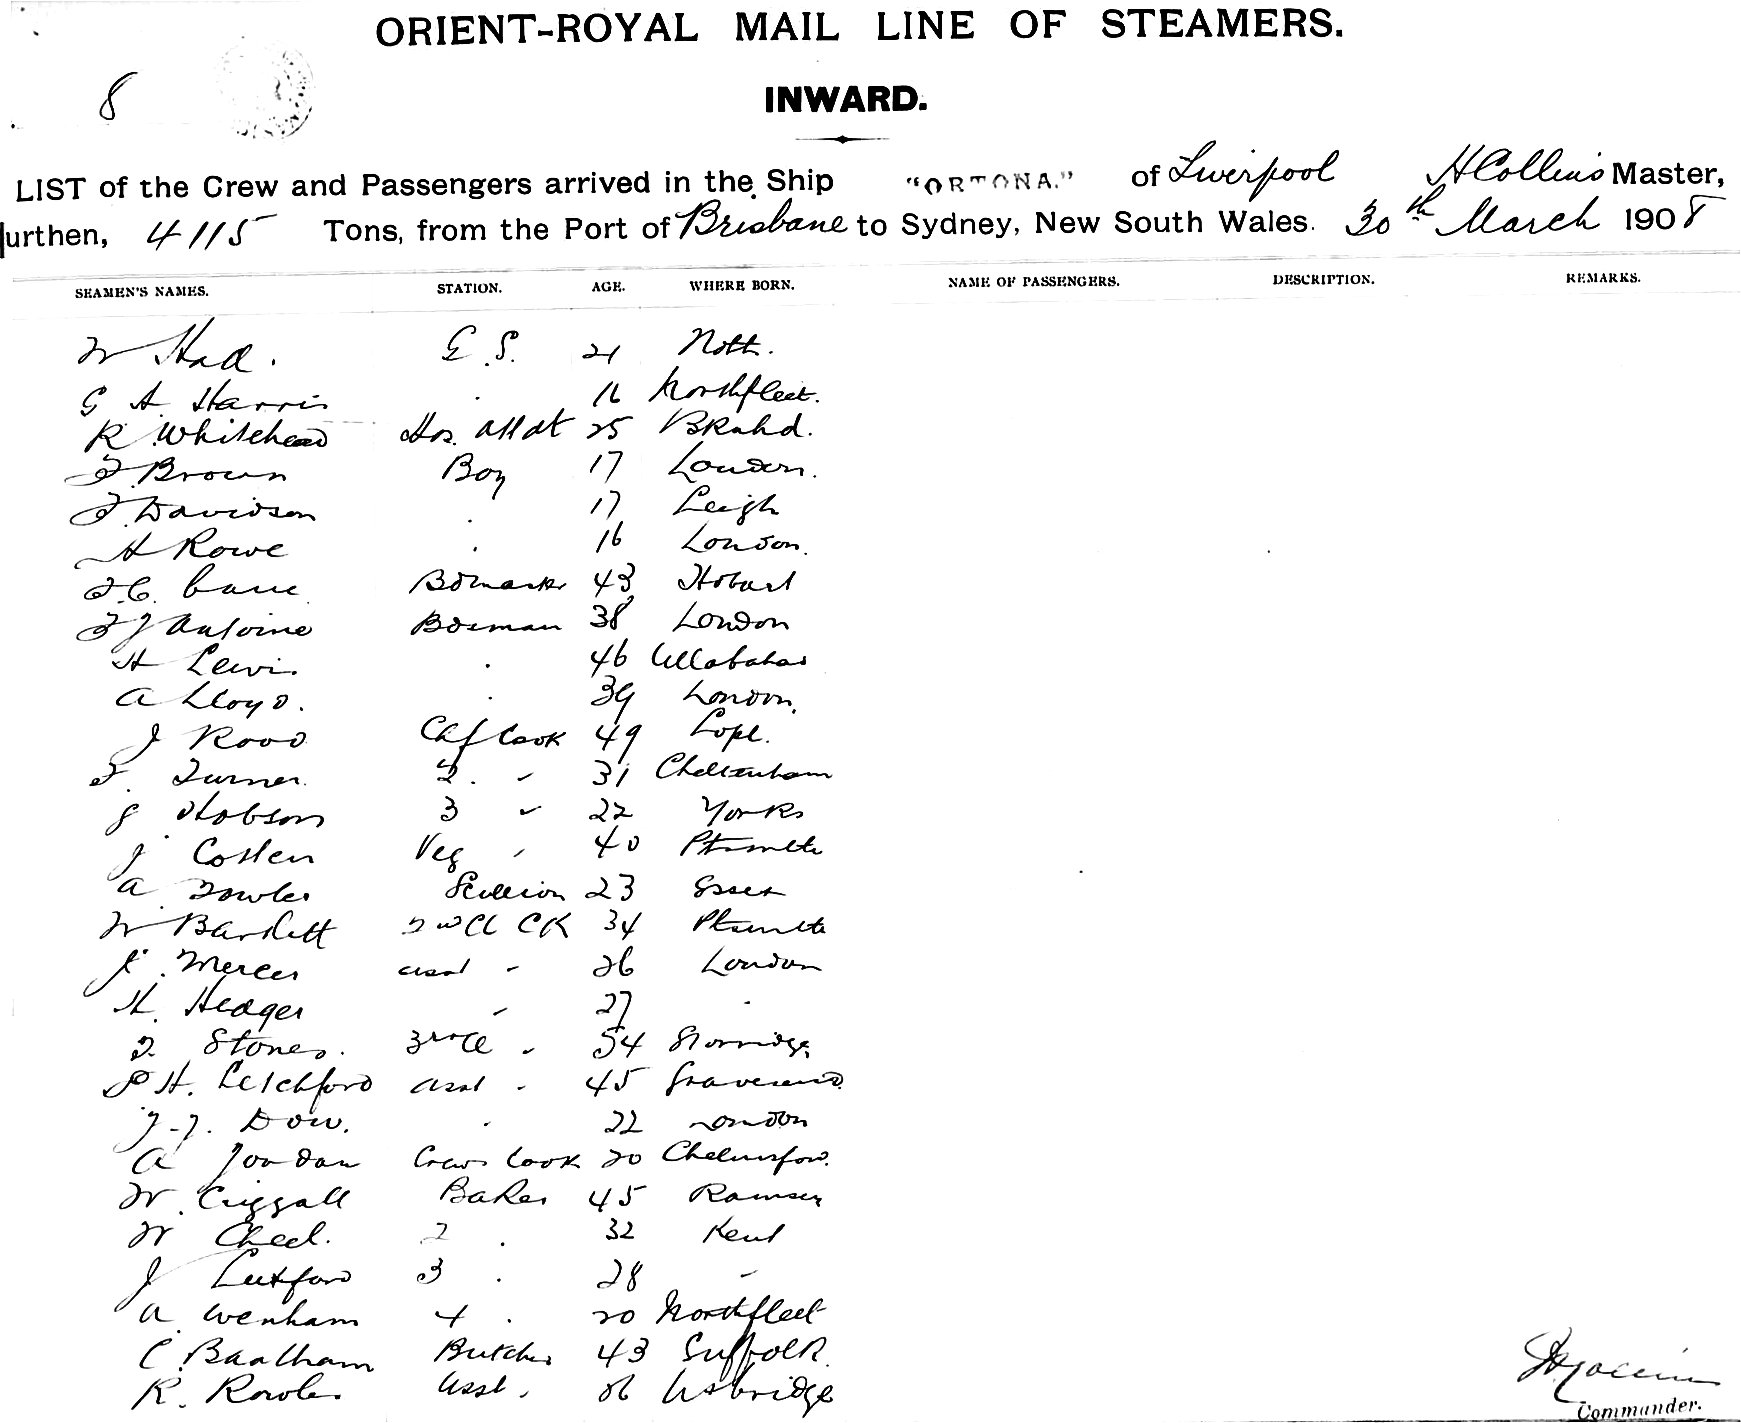 ORIENT-ROYAL MAIL LINE OF STEAMERS.
8
INWARD.
LIST of the Crew and Passengers arrived in the Ship "ORTONA." of Liverpool H Collins Master,
urthen, 4115 Tons, from the Port of Brisbane to Sydney, New South Wales. 30th March 1908
SEAMEN'S NAMES. STATION. AGE. WHERE BORN. NAME OF PASSENGERS. DESCRIPTION. REMARKS.
W G.S. 21 Nott.
G A Harris 16 Northfleet.
R Whitehead Hos. Attdt 25
F Brown Boy 17 London.
F. Davidson 17 Leigh
H Rowe 16 London.
F.C. Cane 43 Hobart
F J Antoine 38 London
H Lewis 46
A Lloyd. 39 London.
J Rood Chf Cook 49
F. Turner. 2. " 31 Cheltenham
G Hobson 3 " 22 Yorks
J Costen Veg " 40 Ptsmth
A Fowler Scullion 23 Essex
W Bartlett 2nd Cl CK 34 Ptsmth
J. Mercer asst " 26 London
H. Hedger " 27 "
Stones. 3rd Cl " 54
P H. Letchford asst " 45 Gravesend
J. J. Dow. 22 London
A Jordan Crews Cook 20 Chelmsford.
W. Criggall Baker 45 Ramsey
W Cheel. 2 . 32 Kent
J Luxford 3 . 28 "
A. Wenham 4 . 20 Northfleet
C. Baalham Butcher 43 Suffolk
R. Rowles Asst. 26 Uxbridge
H Collins
Commander.